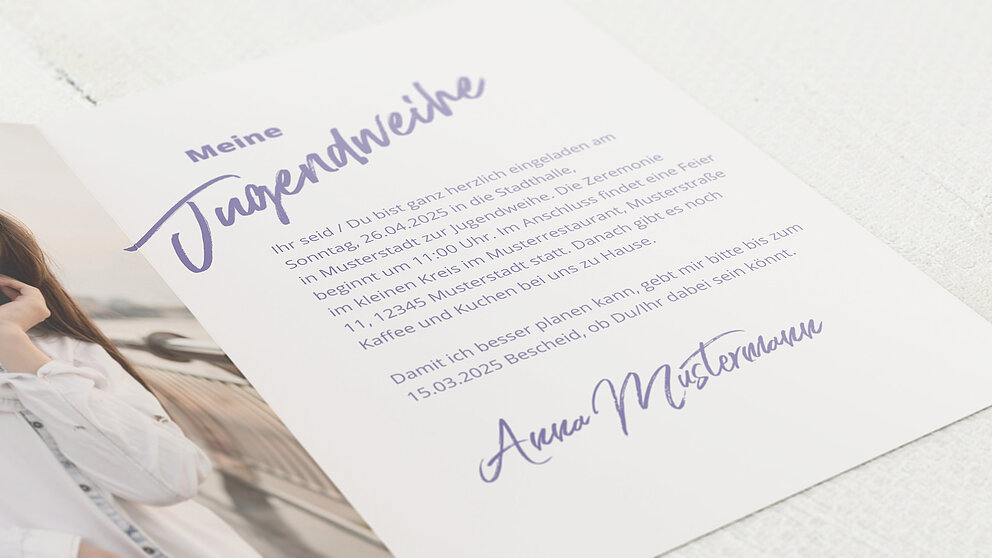 Meine
Jugendweihe
Ihr seid / Du bist ganz herzlich eingeladen am
Sonntag, 26.04.2025 in die Stadthalle,
in Musterstadt zur Jugendweihe. Die Zeremonie
beginnt um 11:00 Uhr. Im Anschluss findet eine Feier
im kleinen Kreis im Musterrestaurant, Musterstraße
11, 12345 Musterstadt statt. Danach gibt es noch
Kaffee und Kuchen bei uns zu Hause.
Damit ich besser planen kann, gebt mir bitte bis zum
15.03.2025 Bescheid, ob Du/Ihr dabei sein könnt.
Anna Mustermann